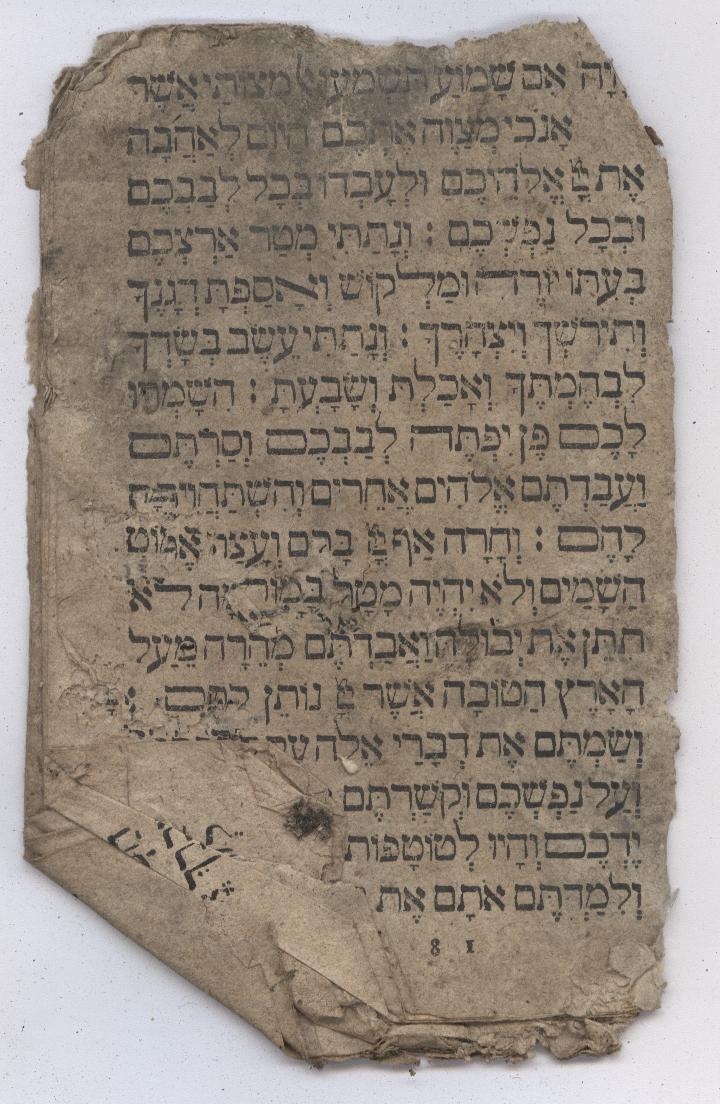 אִם שָׁמוֹעַ תִּשְׁמְעוּ אֶל מִצְוֹתַי אֲשֶׁר
אָנֹכִי מְצַוֶּה אֶתְכֶם הַיּוֹם לְאַהֲבָה
אֶת יְיָ אֱלֹהֵיכֶם וּלְעָבְדוֹ בְּכָל לְבַבְכֶם
וּבְכָל נַפְשְׁכֶם : וְנָתַתִּי מְטַר אַרְצְכֶם
בְּעִתּוֹ יוֹרֶה וּמַלְקוֹשׁ וְאָסַפְתָּ דְגָנֶךָ
וְתִירֹשְׁךָ וְיִצְהָרֶךָ : וְנָתַתִּי עֵשֶׂב בְּשָׂדְךָ
לִבְהֶמְתֶּךָ וְאָכַלְתָּ וְשָׂבָעְתָּ : הִשָּׁמְרוּ
לָכֶם פֶּן יִפְתֶּה לְבַבְכֶם וְסַרְתֶּם
וַעֲבַדְתֶּם אֱלֹהִים אֲחֵרִים וְהִשְׁתַּחֲוִיתֶם
לָהֶם : וְחָרָה אַף יְיָ בָּכֶם וְעָצַר
הַשָּׁמַיִם וְלֹא יִהְיֶה מָטָר לֹא
תִתֵּן אֶת יְבוּלָהּ וַאֲבַדְתֶּם מְהֵרָה מֵעַל
הָאָרֶץ הַטּוֹבָה אֲשֶׁר יְיָ נוֹתֵן לָכֶם :
וְשַׂמְתֶּם אֶת דְּבָרַי אֵלֶּה
וְעַל נַפְשְׁכֶם וּקְשַׁרְתֶּם
יֶדְכֶם וְהָיוּ לְטוֹטָפוֹת
וְלִמַּדְתֶּם אֹתָם אֶת
8 1